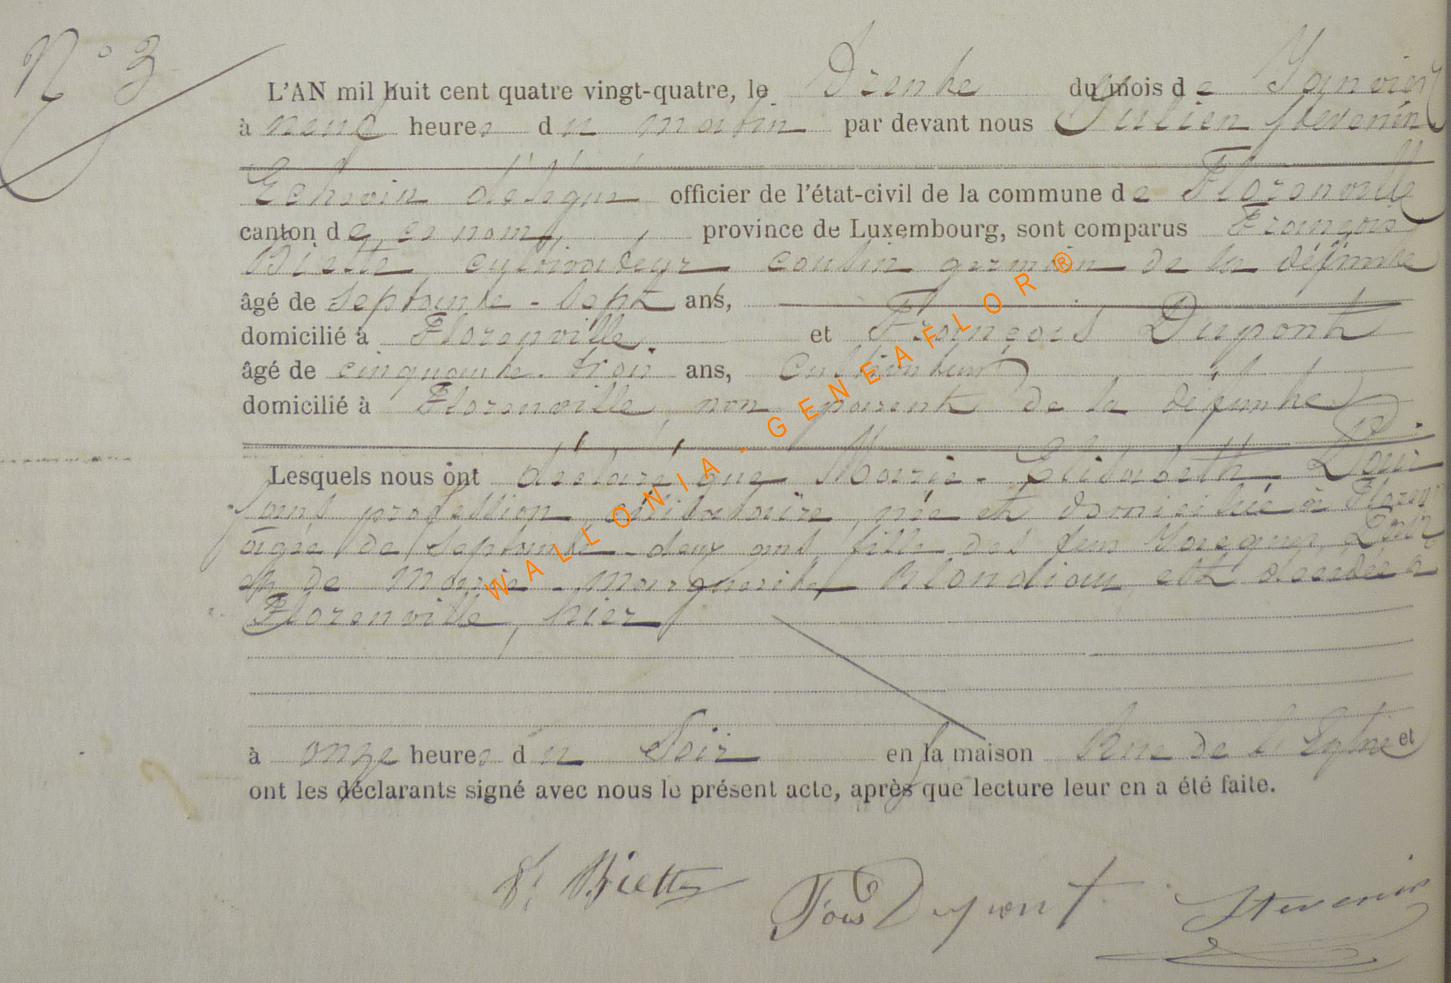 N° 3
L'AN mil huit cent quatre vingt-quatre, le Trente du mois de Janvier
à neuf heures du matin par devant nous Julien Stevenin
Echevin délégué officier de l'état-civil de la commune de Florenville
canton de ce nom, province de Luxembourg, sont comparus François
Biette, cultivateur cousin germain de la défunte
âgé de septante-sept ans,
domicilié à Florenville et François Dupont
âgé de cinquante-trois ans, Cultivateur
domicilié à Florenville, non parent de la défunte
Lesquels nous ont déclaré que Marie-Elisabeth
sans profession, célibataire, née et domiciliée à
âgée de septante-deux ans, fille des feu Jacques
et de Marie-Marguerite Blondiau, est décédée à
Florenville, hier
à onze heures du Soir en la maison Rue de l'Eglise et
ont les déclarants signé avec nous le présent acte, après que lecture leur en a été faite.
Biette Fçois Dupont Stevenin
WALLONIA - GENEAFLOR ®